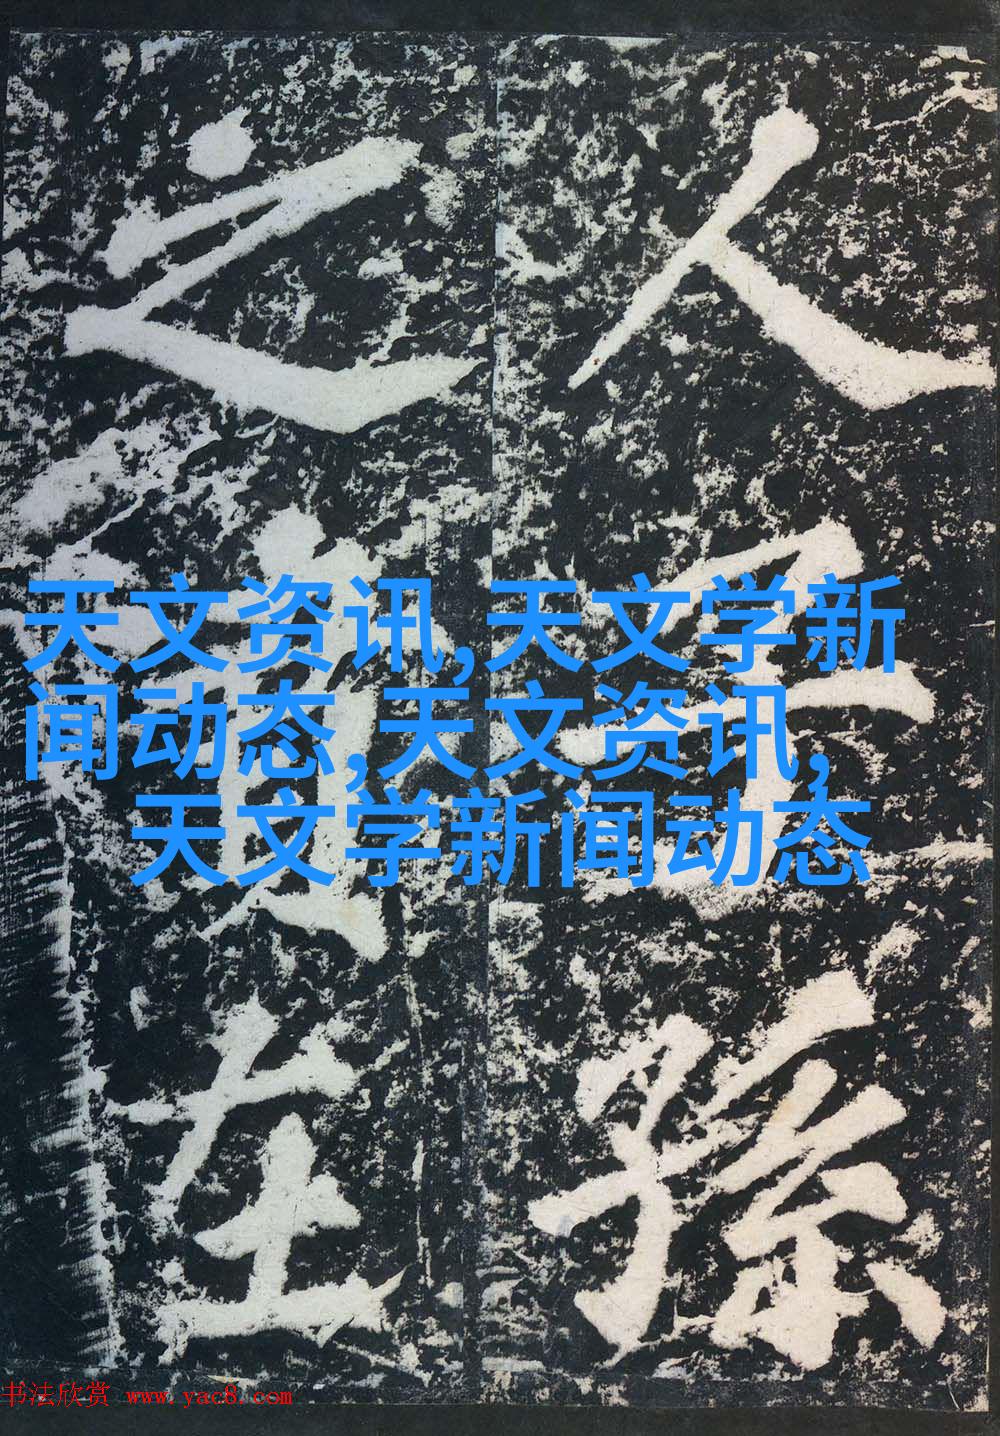 人孫
之在
天文资讯,天文学新
闻动态,天文资讯,
天文学新闻动态
书法欣赏 www.yac8.com